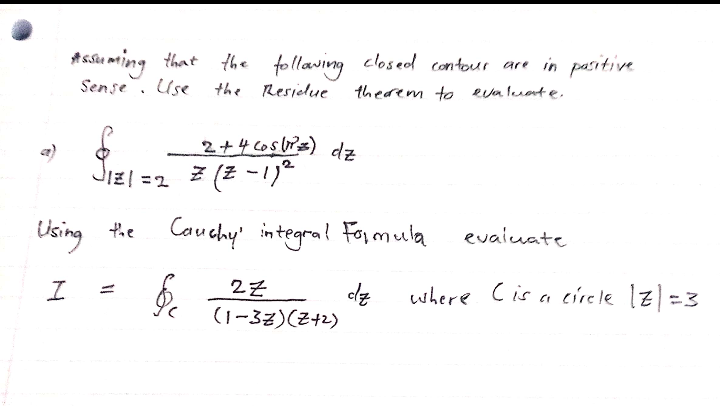 Assuming that the following closed contour are in positive
Sense. Use the Residue theorem to evaluate.
a) ∮|z|=2 2+4cos(π²z) / z(z-1)² dz
Using the Cauchy' integral Formula evaluate
I = ∮c 2z / (1-3z)(z+2) dz where C is a circle |z|=3